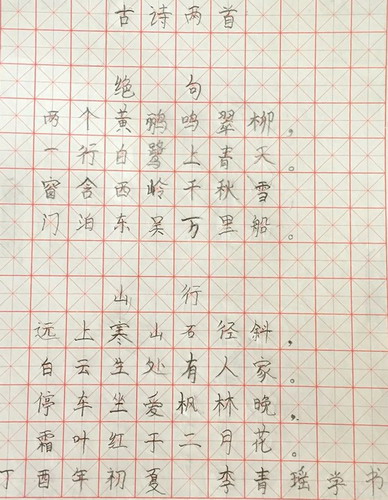 古诗两首
绝句
两个黄鹂鸣翠柳，
一行白鹭上青天。
窗含西岭千秋雪
门泊东吴万里船。
山行
远上寒山石径斜，
白云生处有人家。
停车坐爱枫林晚，
霜叶红于二月花。
丁酉年初夏 李青瑶学书